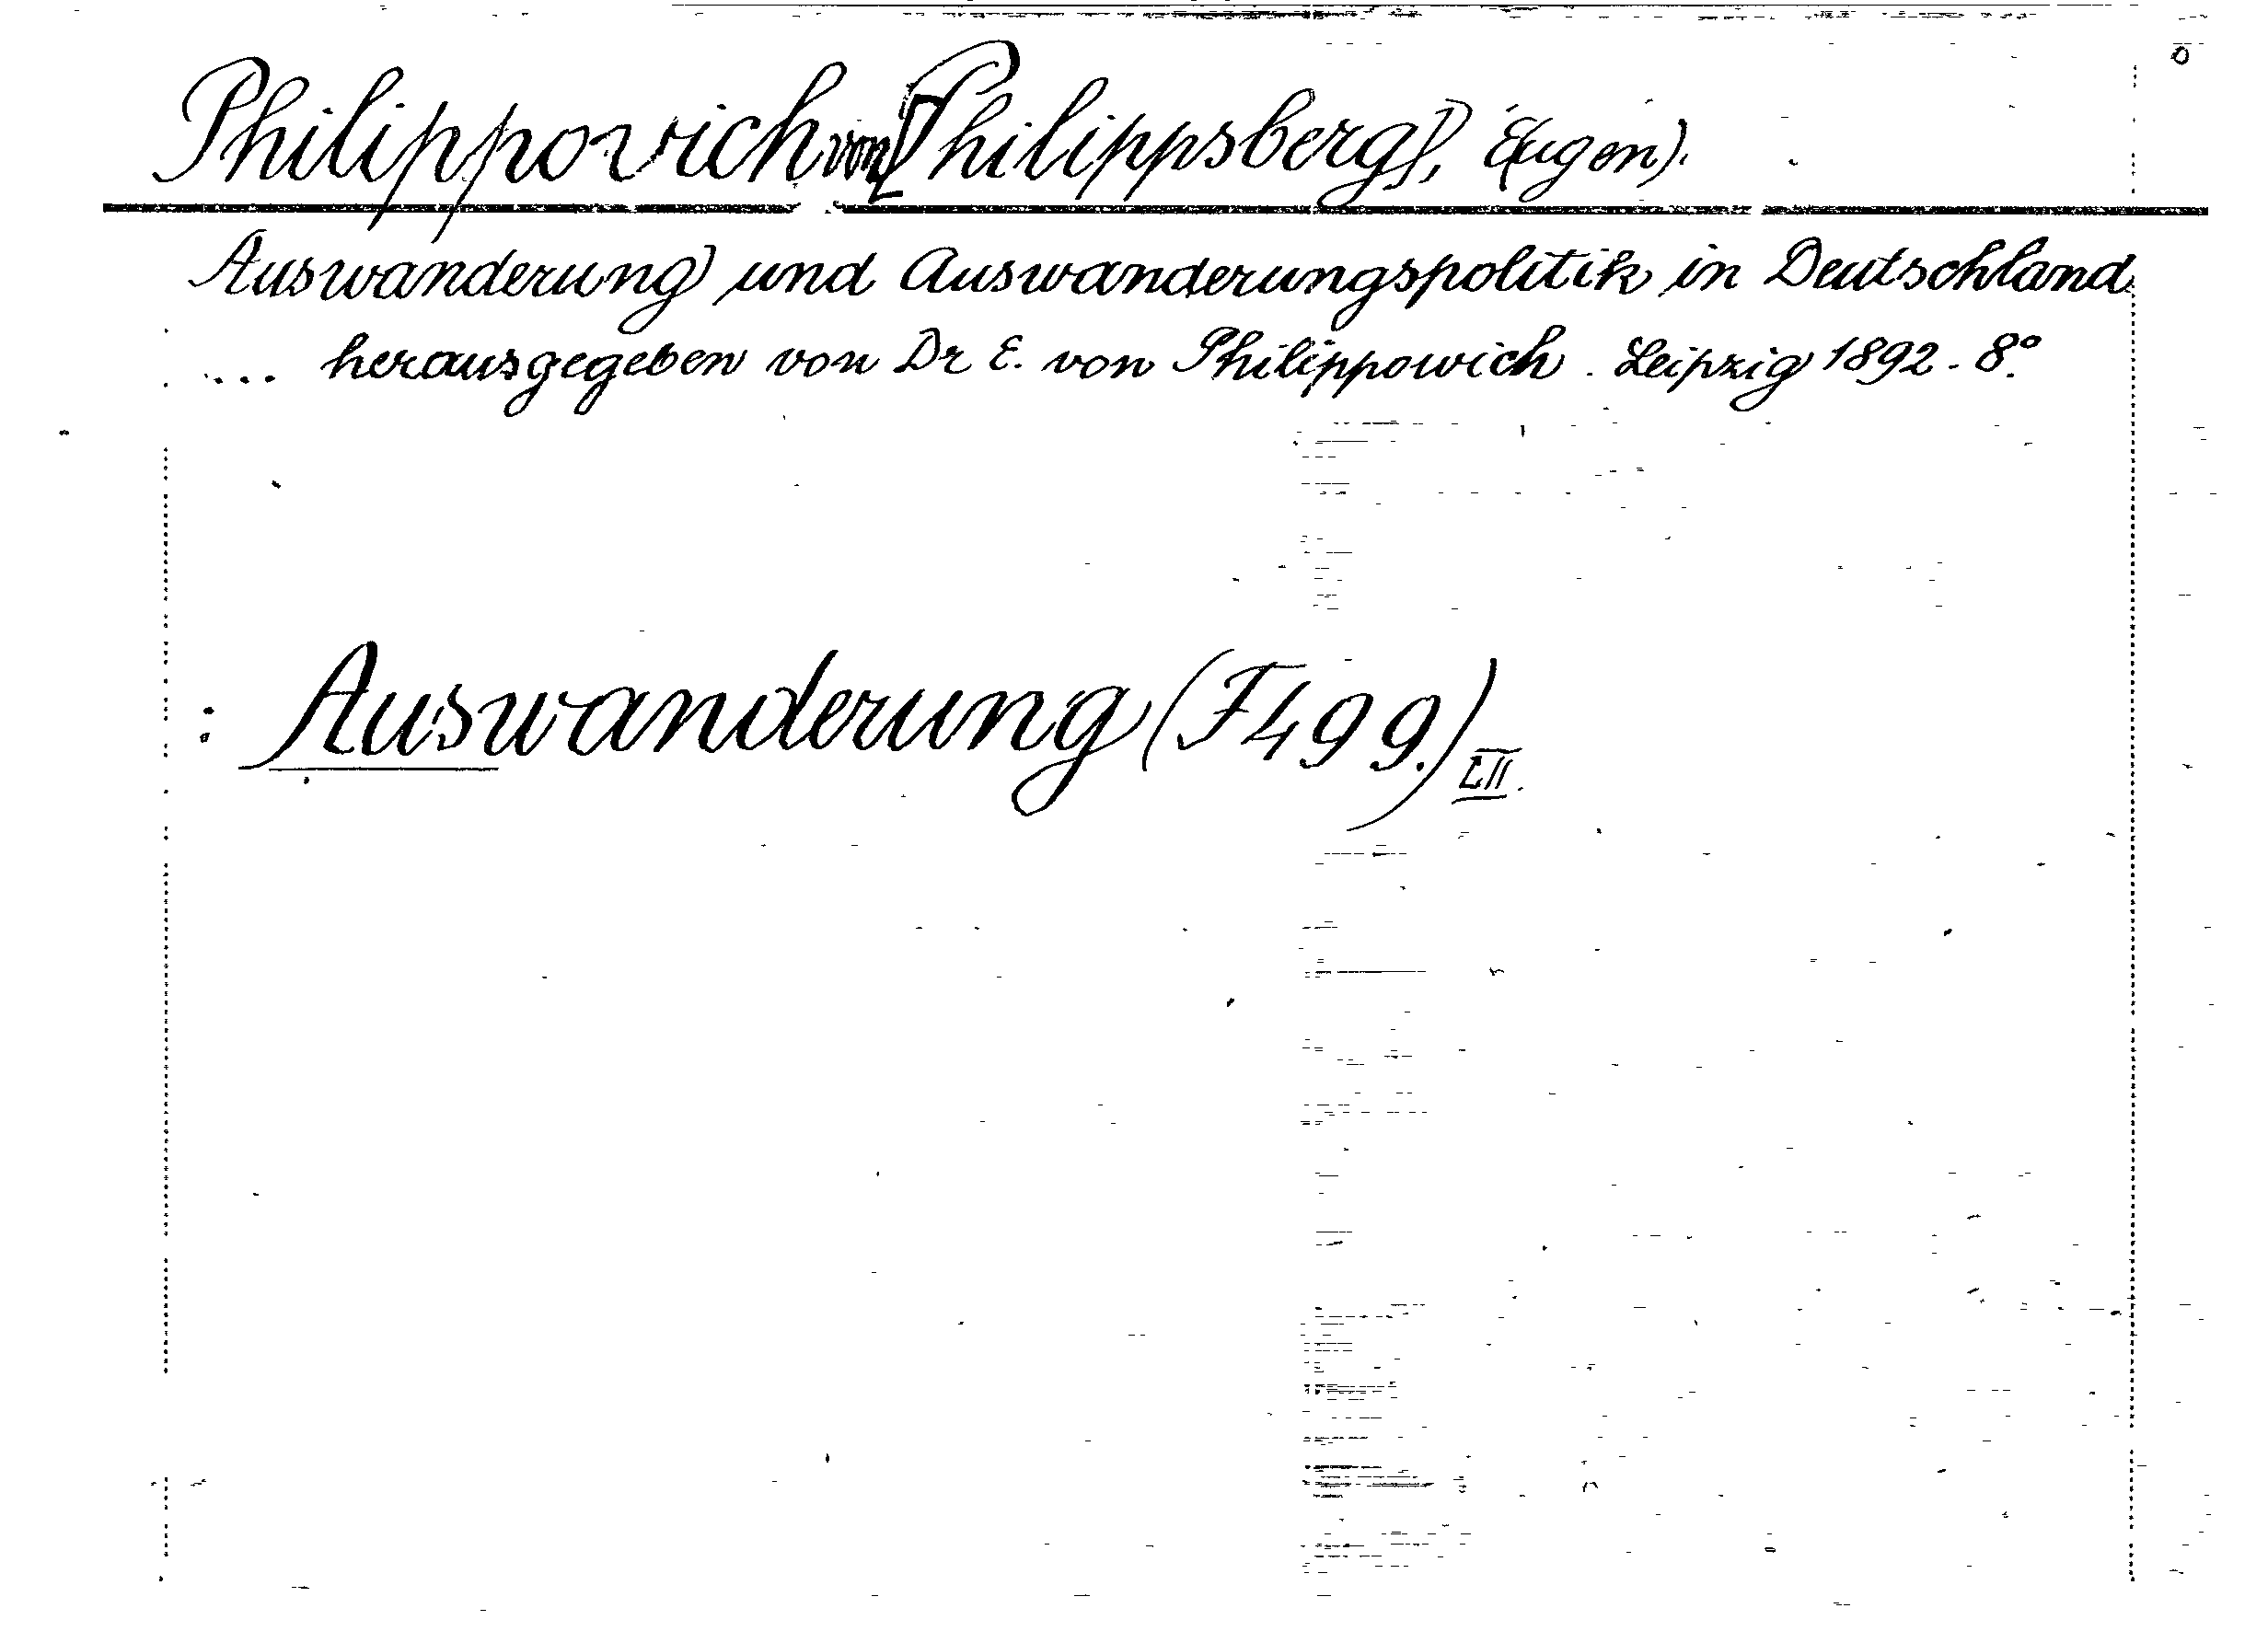 Philippovich von [Philippsberg], (Eugen).
Auswanderung und Auswanderungspolitik in Deutschland
... herausgegeben von Dr E. von Philippowich. Leipzig 1892 - 8º.
: Auswanderung (F 499.)